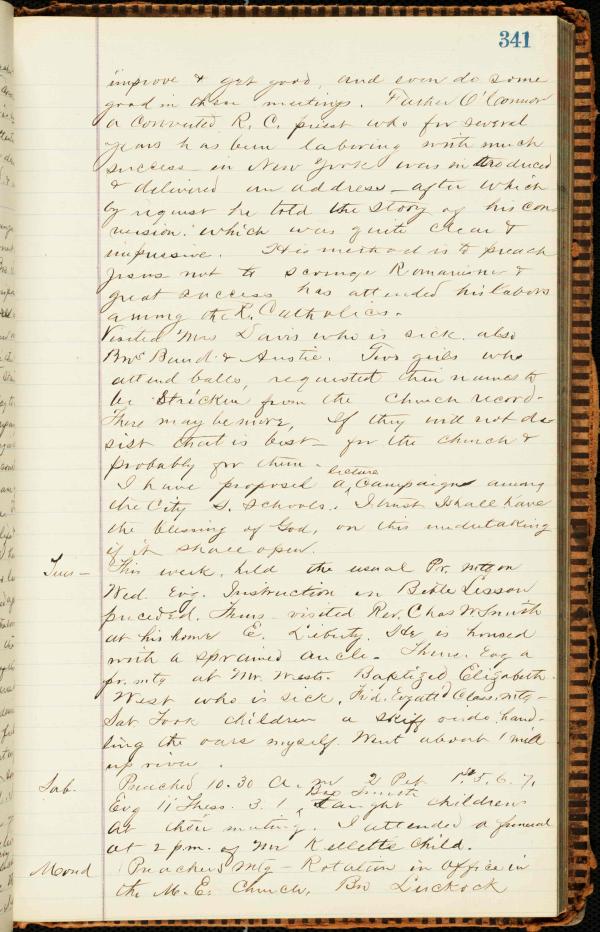 341
improve & get good, and even do some
good in these meetings. Father O'Connor
a converted R. C. priest who for several
years has been laboring with much
success in New York was introduced
& delivered an address - after which
by request he told the story of his con-
version. which was quite clear &
impressive. His method is to preach
Jesus not to scourge Romanism &
great success has attended his labors
among the R. Catholics.
Visited Mrs Davis who is sick. also
Bros Baud & Austie. Two girls who
attend balls, requested their names to
be Stricken from the Church record.
There may be more, If they will not de-
sist that is best - for the church &
probably for them.
I have proposed a lecture Campaign among
the City S. Schools. I trust I shall have
the blessing of God, on this undertaking
if it shall open.
Tues - This week, held the usual Pr. mtg on
Wed. Evg. Instruction in Bible Lesson
preceded. Thurs - visited Rev. Chas W. Smith
at his home E. Liberty. He is housed
with a sprained ancle. Thurs. Evg a
pr. mtg at Mr. Wests. Baptized Elizabeth
West who is sick. Frid. Evg attd Class. mtg -
Sat. Took children a skiff ride, hand-
ling the oars myself. Went about 1 mile
up river.
Sab. Preached 10.30 a. m 2 Pet 1st 5. 6. 7.
Evg II Thess. 3. 1 Bro Smith taught children
at their meeting. I attended a funeral
at 2 p.m. of Mr Kelletts child.
Mond Preachers Mtg - Rotation in Office in
the M. E. Church. Bro Luckock